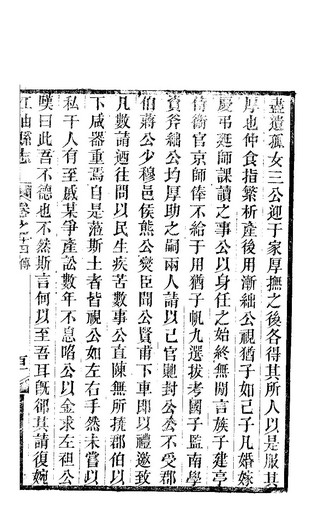 盡遺孤女三公迎于家厚撫之後各得其所人以是服其
厚也仲食指繁析產後用漸絀公視猶子如己子凡婚嫁
慶弔延師課讀之事公以身任之始終無閒言族子建亭
侍衞官京師俸不給于用猶子帆九選拔考國子監南學
資斧絀公均厚助之嗣兩人請以己官貤封公公不受郡
伯蔣公少穆邑侯熊公燮臣聞公賢甫下車即以禮邀致
凡數請迺往問以民生疾苦數事公直陳無所撓郡伯以
下咸器重焉自是蒞斯土者皆視公如左右手然未嘗以
私干人有至戚某爭產訟數年不息啗公以金求左袒公
嘆曰此吾不德也不然斯言何以至吾耳旣卻其請復婉
江油縣志 卷之十四傳